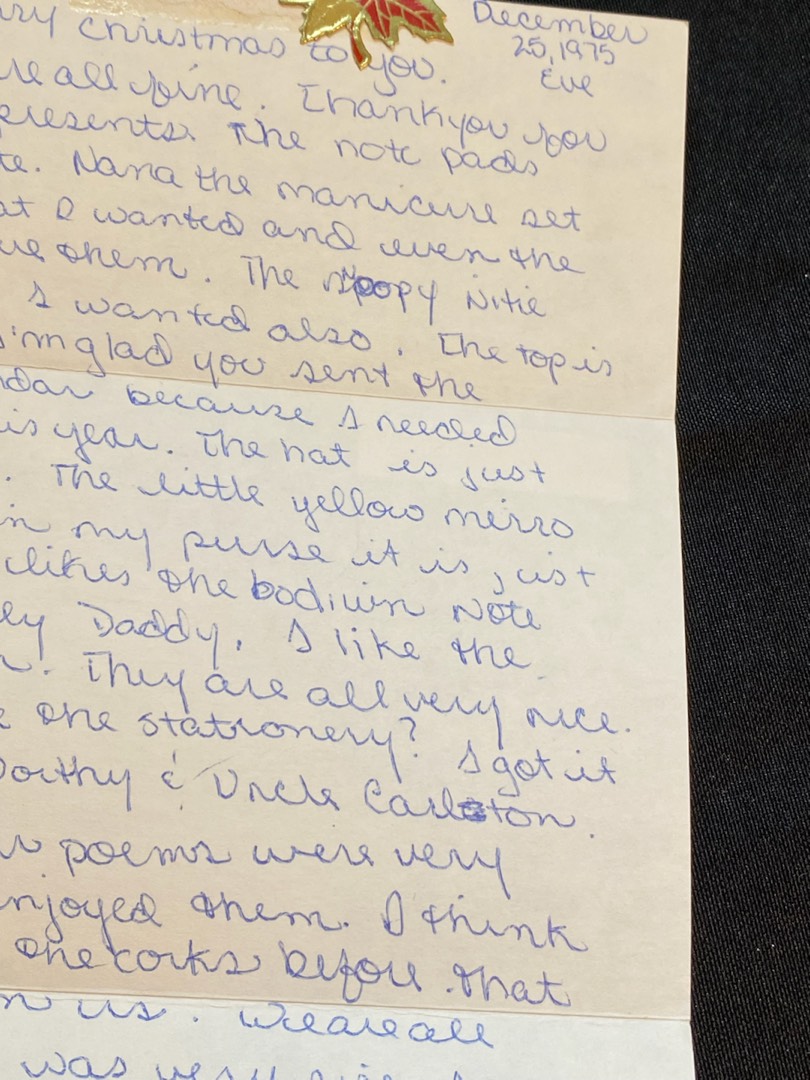 December
25, 1975
Eve
ry Christmas to you.
re all fine. Thankyou for
resents. The note pads
te. Nana the manicure set
at I wanted and even the
ve them. The Snoopy Nitie
I wanted also. The top is
i'm glad you sent the
ndar because I needed
is year. The hat is just
. The little yellow mirro
in my purse it is just
likes the Note
ey Daddy. I like the
. They are all very nice.
e the stationery? I got it
Dorthy & Uncle Carlston.
r poems were very
njoyed them. I think
the corks before that
n us. We are all
was very